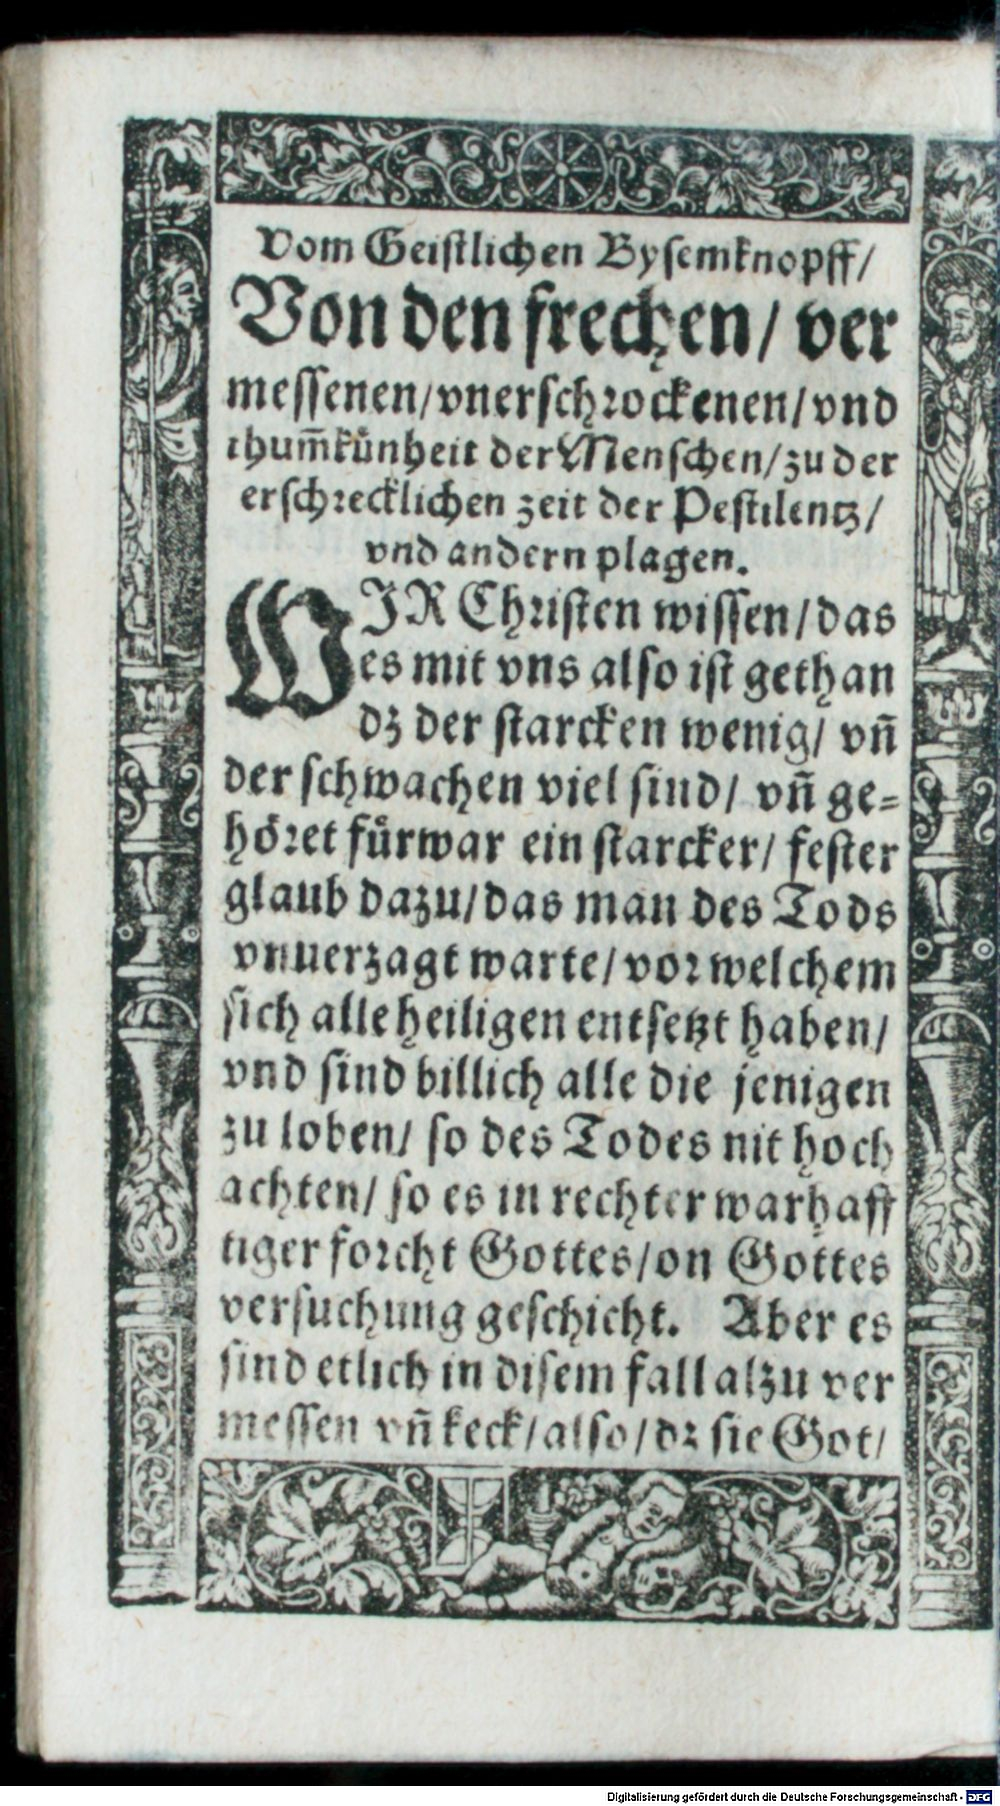 Vom Geistlichen Bysemknopff/
Von den frechen/ ver
messenen/ vnerschrockenen/ vnd
thum̃kuͤnheit der Menschen/ zu der
erschrecklichen zeit der Pestilentz/
vnd andern plagen.
WJR Christen wissen/ das
es mit vns also ist gethan
dz der starcken wenig/ vñ
der schwachen viel sind/ vñ ge=
hoͤret fuͤrwar ein starcker/ fester
glaub dazu/ das man des Tods
vnuerzagt warte/ vor welchem
sich alle heiligen entsetzt haben/
vnd sind billich alle die jenigen
zu loben/ so des Todes nit hoch
achten/ so es in rechter warhaff
tiger forcht Gottes/ on Gottes
versuchung geschicht. Aber es
sind etlich in disem fall alzu ver
messen vñ keck/ also/ dz sie Got/
Digitalisierung gefördert durch die Deutsche Forschungsgemeinschaft - DFG